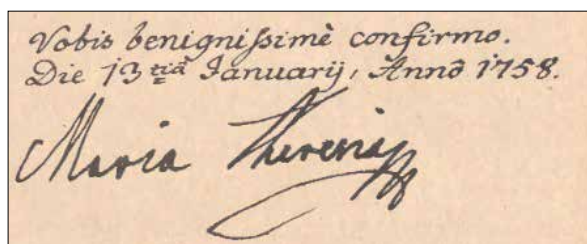 Vobis benignißimè confirmo.
Die 13tiâ Januarij, Annô 1758.
Maria Theresia